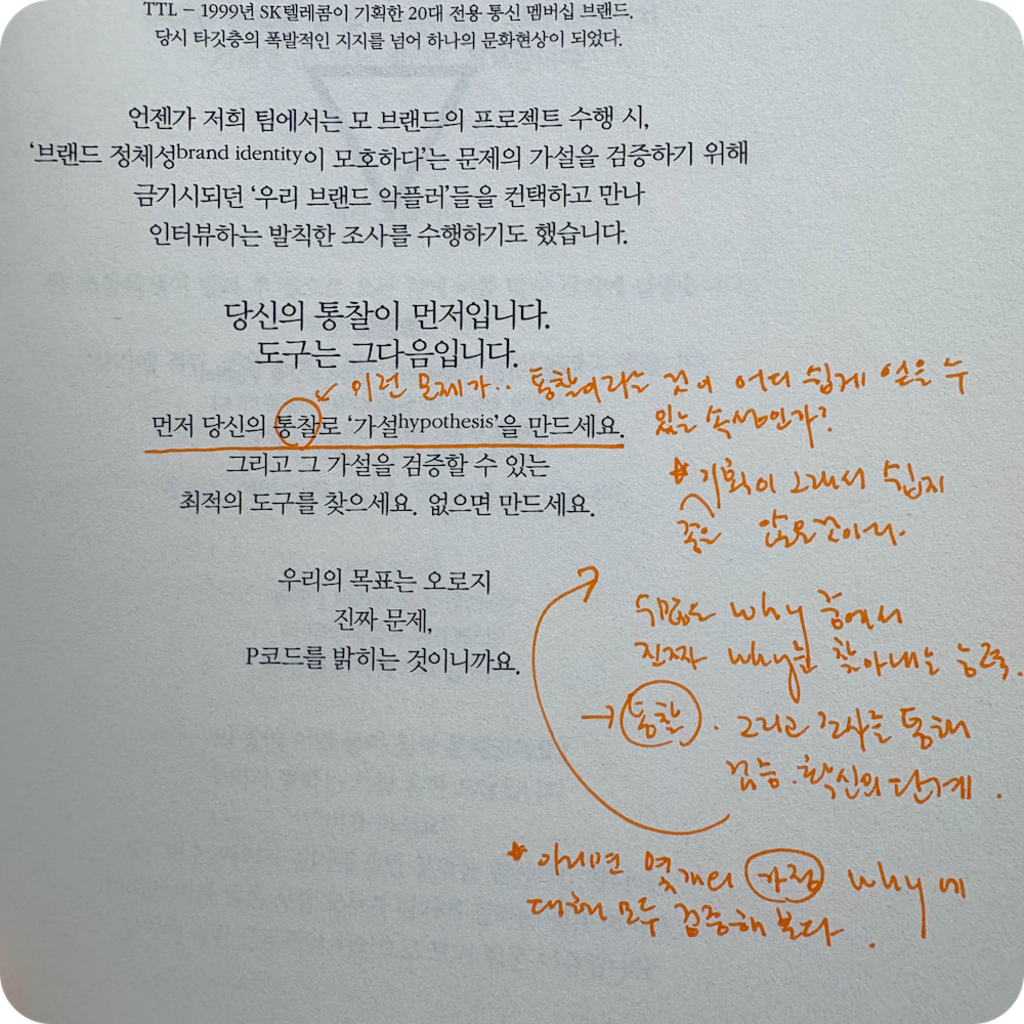 TTL – 1999년 SK텔레콤이 기획한 20대 전용 통신 멤버십 브랜드.
당시 타깃층의 폭발적인 지지를 넘어 하나의 문화현상이 되었다.
언젠가 저희 팀에서는 모 브랜드의 프로젝트 수행 시,
‘브랜드 정체성brand identity이 모호하다’는 문제의 가설을 검증하기 위해
금기시되던 ‘우리 브랜드 악플러’들을 컨택하고 만나
인터뷰하는 발칙한 조사를 수행하기도 했습니다.
당신의 통찰이 먼저입니다.
도구는 그다음입니다.
← 이런 문제가.. 통찰이라는 것이 어디 쉽게 얻을 수
있는 속성인가?
먼저 당신의 통찰로 ‘가설hypothesis’을 만드세요.
그리고 그 가설을 검증할 수 있는
최적의 도구를 찾으세요. 없으면 만드세요.
* 기획이 그래서 쉽지
좋은 않은 것이다.
우리의 목표는 오로지
진짜 문제,
P코드를 밝히는 것이니까요.
수많은 why 중에서
진짜 why를 찾아내는 능력.
→ 통찰. 그리고 조사를 통해
검증. 확신의 단계.
* 아니면 몇개의 가정 why에
대해 모두 검증해 본다.